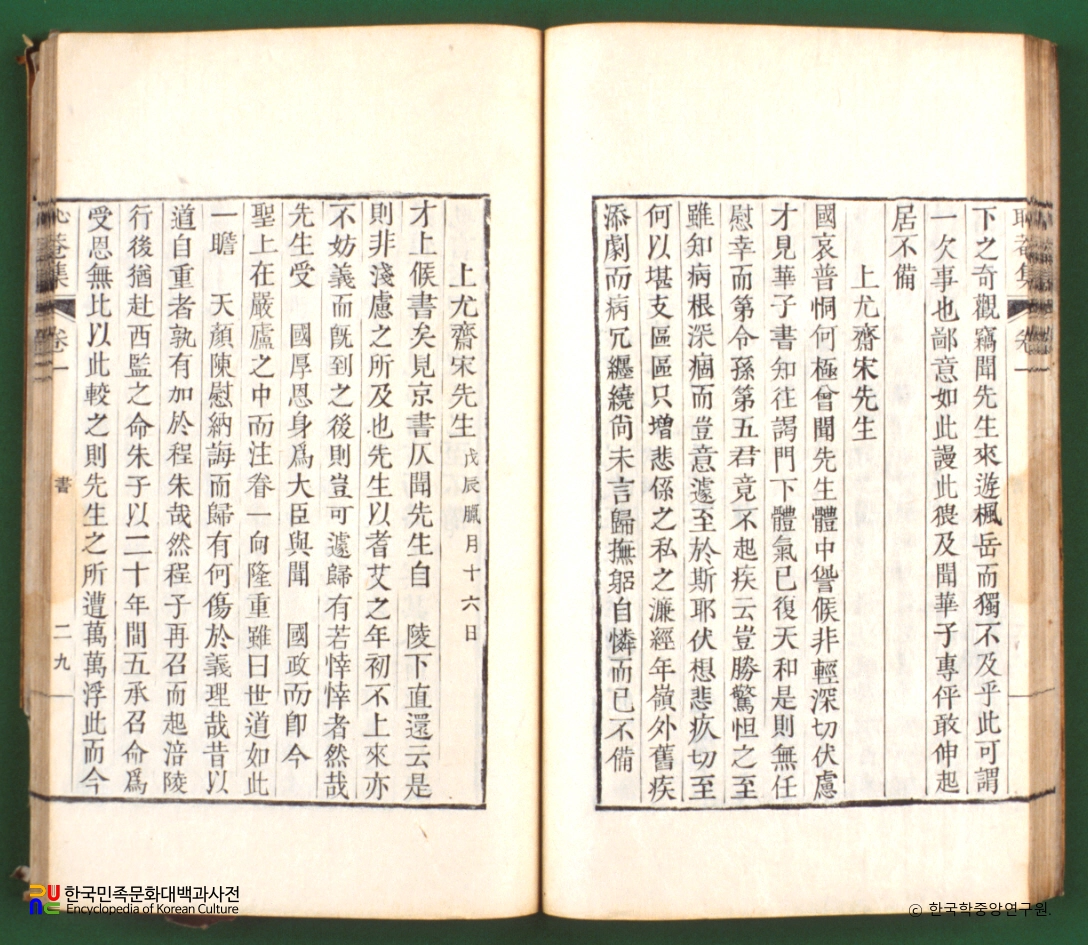 下之奇觀竊聞先生來遊楓岳而獨不及乎此可謂
一欠事也鄙意如此謾此猥及聞華子專伻敢伸起
居不備
上尤齋宋先生
國哀普恫何極曾聞先生體中諐候非輕深切伏慮
才見華子書知往謁門下體氣已復天和是則無任
慰幸而第令孫第五君竟不起疾云豈勝驚怛之至
雖知病根深痼而豈意遽至於斯耶伏想悲疚切至
何以堪支區區只增悲係之私之濂經年嶺外舊疾
添劇而病冗纏繞尙未言歸撫躬自憐而已不備
上尤齋宋先生 戊辰臘月十六日
才上候書矣見京書仄聞先生自 陵下直還云是
則非淺慮之所及也先生以耆艾之年初不上來亦
不妨義而旣到之後則豈可遽歸有若悻悻者然哉
先生受 國厚恩身爲大臣與聞 國政而卽今
聖上在嚴廬之中而注眷一向隆重雖曰世道如此
一瞻 天顏陳慰納誨而歸有何傷於義理哉昔以
道自重者孰有加於程朱哉然程子再召而起涪陵
行後猶赴西監之命朱子以二十年間五承召命爲
受恩無比以此較之則先生之所遭萬萬浮此而今
菴集 卷一 書 二九
한국민족문화대백과사전
Encyclopedia of Korean Culture
© 한국학중앙연구원.